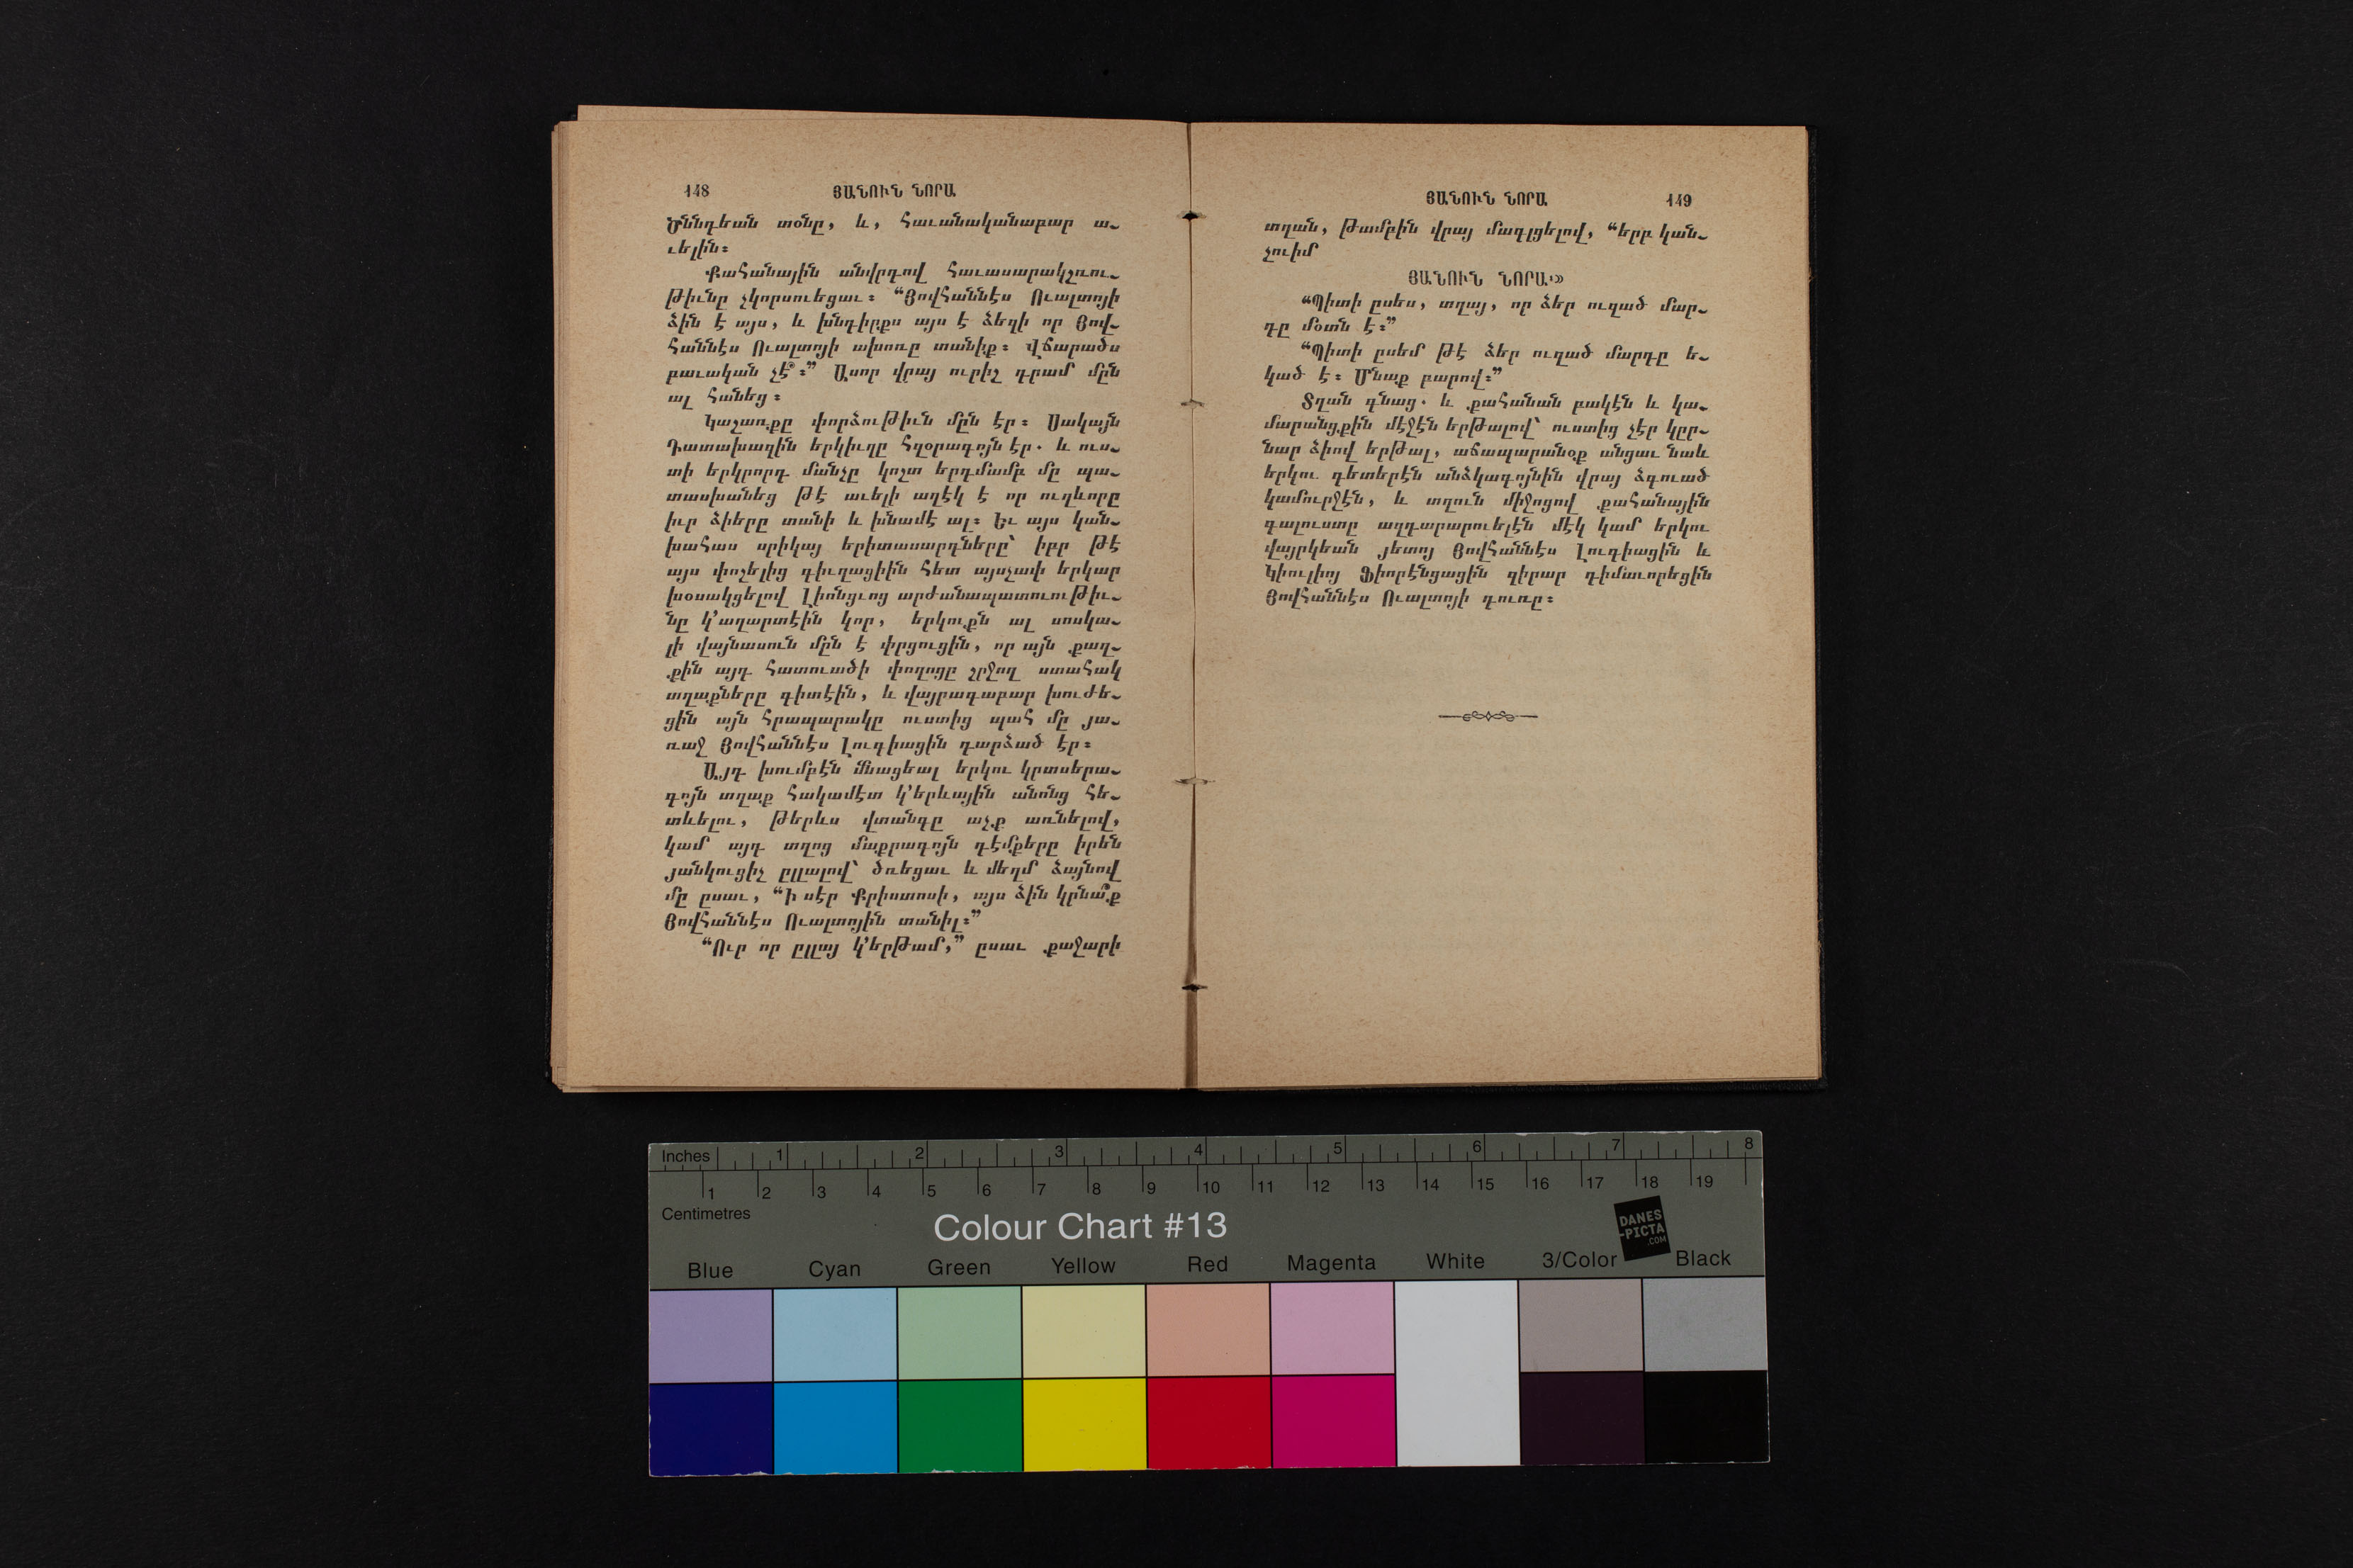 148 ՅԱՆՈՒՆ ՆՈՐԱ
Ծննդեան տօնը, և, հաւանականաբար ա-
ւելին։
Քահանային անվրդով հաւասարակշռու-
թիւնը չկորսուեցաւ։ “Յովհաննէս Ուալտոյի
ձին է այս, և խնդիրքս այս է ձեզի որ Յով-
հաննէս Ուալտոյի ախոռը տանիք։ Վճարածս
բաւական չէ՞։” Ասոր վրայ ուրիշ դրամ մըն
ալ հանեց։
Կաշառքը փորձութիւն մըն էր։ Սակայն
Դատախազին երկիւղը հզօրագոյն էր. և ուս-
տի երկրորդ մանչը կոշտ երդմամբ մը պա-
տասխանեց թէ աւելի աղէկ է որ ուղևորը
իւր ձիերը տանի և խնամէ ալ։ Եւ այս կան-
խահաս սրիկայ երիտասարդները՝ իբր թէ
այս փոշելից գիւղացիին հետ այսչափ երկար
խօսակցելով Լիոնցւոց արժանապատուութիւ-
նը կ’աղարտէին կոր, երկուքն ալ սոսկա-
լի վայնասուն մըն է փրցուցին, որ այն քաղ-
քին այդ հատուածի փողոցը շրջող ստահակ
տղաքները գիտէին, և վայրագաբար խուժե-
ցին այն հրապարակը ուստից պահ մը յա-
ռաջ Յովհաննէս Լուգիացին դարձած էր։
Այդ խումբէն մնացեալ երկու կրտսերա-
գոյն տղաք հակամէտ կ’երևային անոնց հե-
տևելու, թերևս վտանգը աչք առնելով,
կամ այդ տղոց մաքրագոյն դէմքերը իրեն
յանկուցիչ ըլլալով՝ ծռեցաւ և մեղմ ձայնով
մը ըսաւ, “Ի սէր Քրիստոսի, այս ձին կրնա՞ք
Յովհաննէս Ուալտոյին տանիլ։”
“Ուր որ ըլլայ կ’երթամ,” ըսաւ քաջարի
ՅԱՆՈՒՆ ՆՈՐԱ 149
տղան, թամբին վրայ մագլցելով, “երբ կան-
չուիմ
ՅԱՆՈՒՆ ՆՈՐԱ.»
“Պիտի ըսես, տղայ, որ ձեր ուզած մար-
դը մօտն է։”
“Պիտի ըսեմ թէ ձեր ուզած մարդը ե-
կած է։ Մնաք բարով։”
Տղան գնաց. և քահանան բակէն և կա-
մարանցքին մէջէն երթալով՝ ուստից չէր կըր-
նար ձիով երթալ, աճապարանօք անցաւ նաև
երկու գետերէն անձկագոյնին վրայ ձգուած
կամուրջէն, և տղուն միջոցով քահանային
գալուստը ազդարարուելէն մէկ կամ երկու
վայրկեան յետոյ Յովհաննէս Լուգիացին և
Կիուլիոյ Ֆիորէնցացին զիրար դիմաւորեցին
Յովհաննէս Ուալտոյի դուռը։
Inches 1 2 3 4 5 6 7 8
1 2 3 4 5 6 7 8 9 10 11 12 13 14 15 16 17 18 19
Centimetres
Colour Chart #13
DANES
-PICTA
.COM
Blue Cyan Green Yellow Red Magenta White 3/Color Black